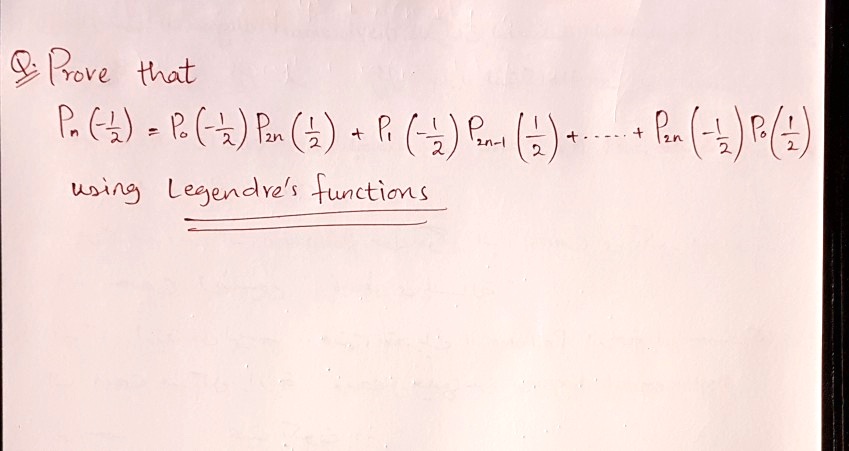 Q: Prove that
Pn(-1/2) = P0(-1/2) P2n(1/2) + P1(-1/2) P2n-1(1/2) + ..... + P2n(-1/2) P0(1/2)
using Legendre's functions